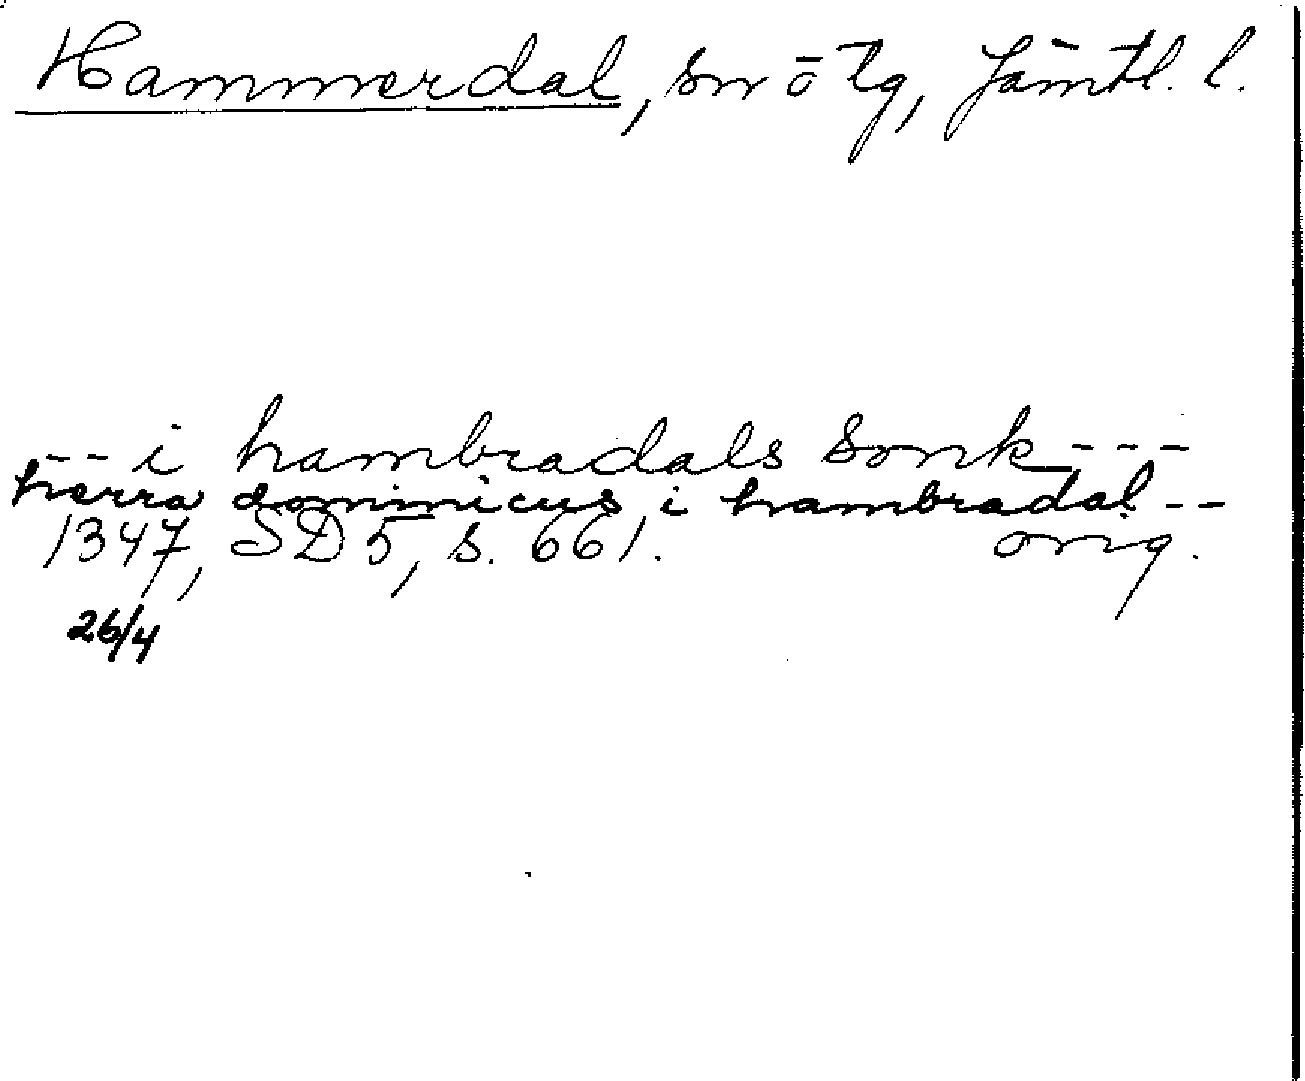 Hammerdal, sn o tg, Jämtl. l.
--- i hambradals sonk ---
hærra dominicus i hambradal --
1347, SD 5, s. 661. orig.
26/4